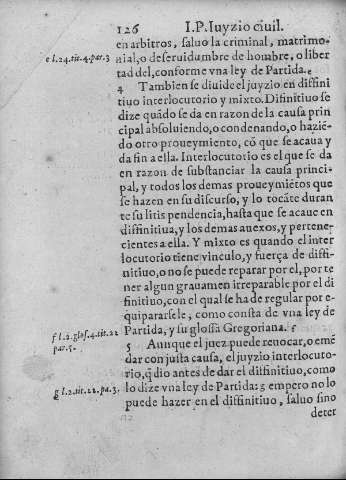 126 I.P. Iuyzio ciuil.
en arbitros, saluo la criminal, matrimo-
e l.24.tit.4.par.3
nial, o de seruidumbre de hombre, o liber
tad del, conforme vna ley de Partida. e
4 Tambien se diuide el juyzio en diffini
tiuo interlocutorio y mixto. Difinitiuo se
dize quãdo se da en razon de la causa prin
cipal absoluiendo, o condenando, o haziẽ-
do otro proueymiento, cõ que se acaua y
da fin a ella. Interlocutorio es el que se da
en razon de substanciar la causa princi-
pal, y todos los demas proueymiẽtos que
se hazen en su discurso, y lo tocãte duran
te su litis pendencia, hasta que se acaue en
diffinitiua, y los demas anexos, y pertene-
cientes a ella. Y mixto es quando el inter
locutorio tiene vinculo, y fuerça de diffi-
nitiuo, o no se puede reparar por el, por te
ner algun grauamen irreparable por el di
finitiuo, con el qual se ha de regular por e-
quipararsele, como consta de vna ley de
f l.2.glos.4.tit.22
par.5.
Partida, y su glossa Gregoriana. f
5 Aunque el juez puede reuocar, o emẽ
dar con justa causa, el juyzio interlocuto-
rio, q̃ dio antes de dar el diffinitiuo, como
g l.2.tit.22.pa.3.
lo dize vna ley de Partida: g empero no lo
puede hazer en el diffinitiuo, saluo sino
deter